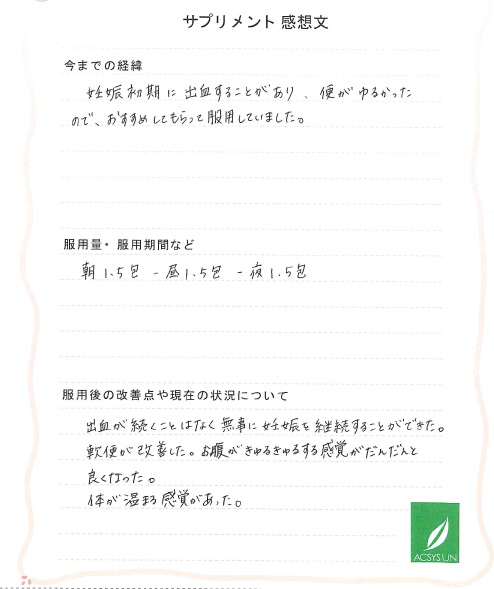 サプリメント 感想文
今までの経緯
妊娠初期に出血することがあり、便がゆるかった
ので、おすすめしてもらって服用していました。
服用量・服用期間など
朝1.5包 - 昼1.5包 - 夜1.5包
服用後の改善点や現在の状況について
出血が続くことはなく無事に妊娠を継続することができた。
軟便が改善した。お腹がきゅるきゅるする感覚がだんだんと
良くなった。
体が温まる感覚があった。
ACSYSUN